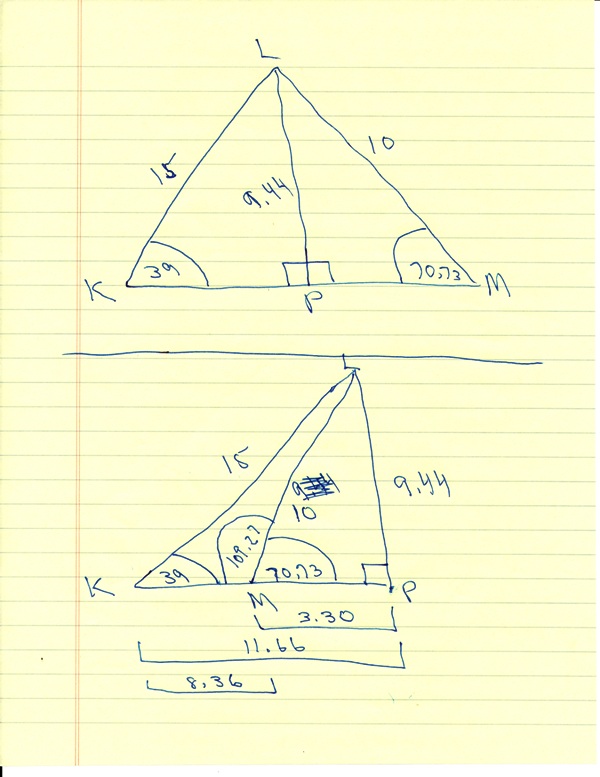 L
15
10
9.44
39
70.73
K
P
M
L
15
10
9.44
109.27
39
70.73
K
M
P
3.30
11.66
8.36